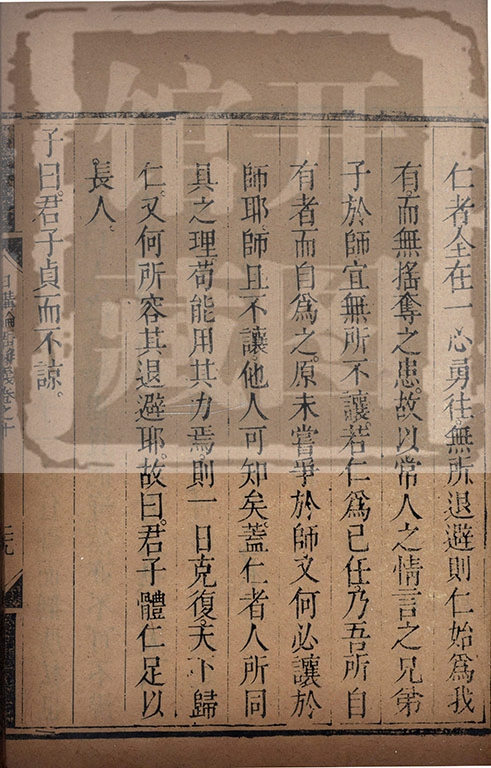 仁者全在一心勇往。無所退避則仁始爲我
有。而無搖奪之患。故以常人之情言之兄弟
子於師宜無所不讓。若仁爲己任。乃吾所自
有者而自爲之。原未嘗爭於師又何必讓於
師耶。師且不讓。他人可知矣。蓋仁者人所同
具之理。苟能用其力焉。則一日克復。天下歸
仁。又何所容其退避耶。故曰。君子體仁足以
長人。
子曰。君子貞而不諒。
日講論語解義卷之十
开图
馆藏